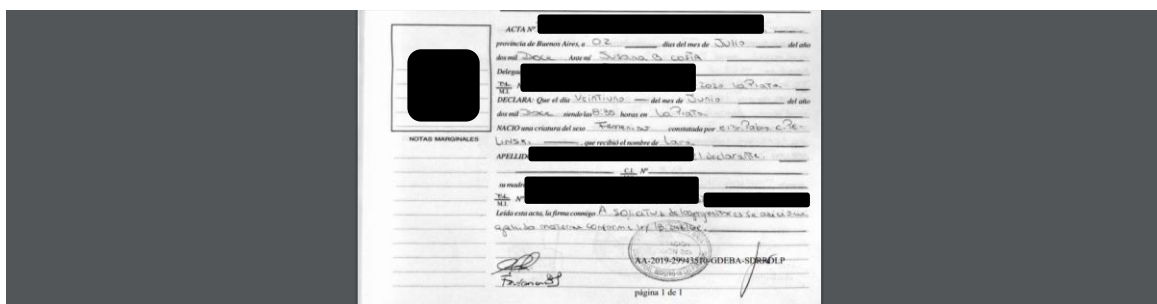 ACTA Nº
provincia de Buenos Aires, a 02 días del mes de Julio del año
dos mil Doce Ante mí Susana B costa
Delega
D.I. M.I. Nº 2020 La Plata
DECLARA: Que el día Veintiuno del mes de Junio del año
dos mil Doce siendo las 8:30 horas en La Plata
NACIO una criatura del sexo Femenino constatada por el Dr. Pablo C. Pe-
linski que recibió el nombre de Lara
APELLID declarante.
C.I. Nº
su madre
D.I. M.I. Nº
Leída esta acta, la firma conmigo A solicitud de los progenitores se adiciona
apellido materno conforme ley
NOTAS MARGINALES
AA-2019-29943510-GDEBA-SDRRDLP
página 1 de 1